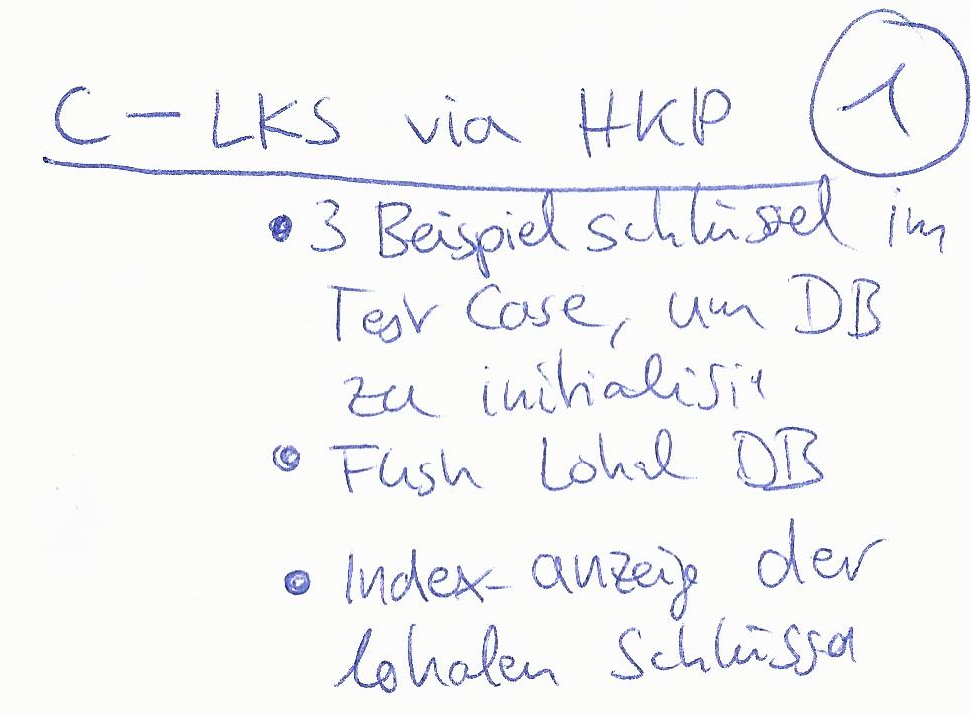 C-LKS via HKP 1
• 3 Beispielschlüssel im
Test Case, um DB
zu initialisi
• Flush Lokal DB
• Index-anzeig der
lokalen Schlüssel